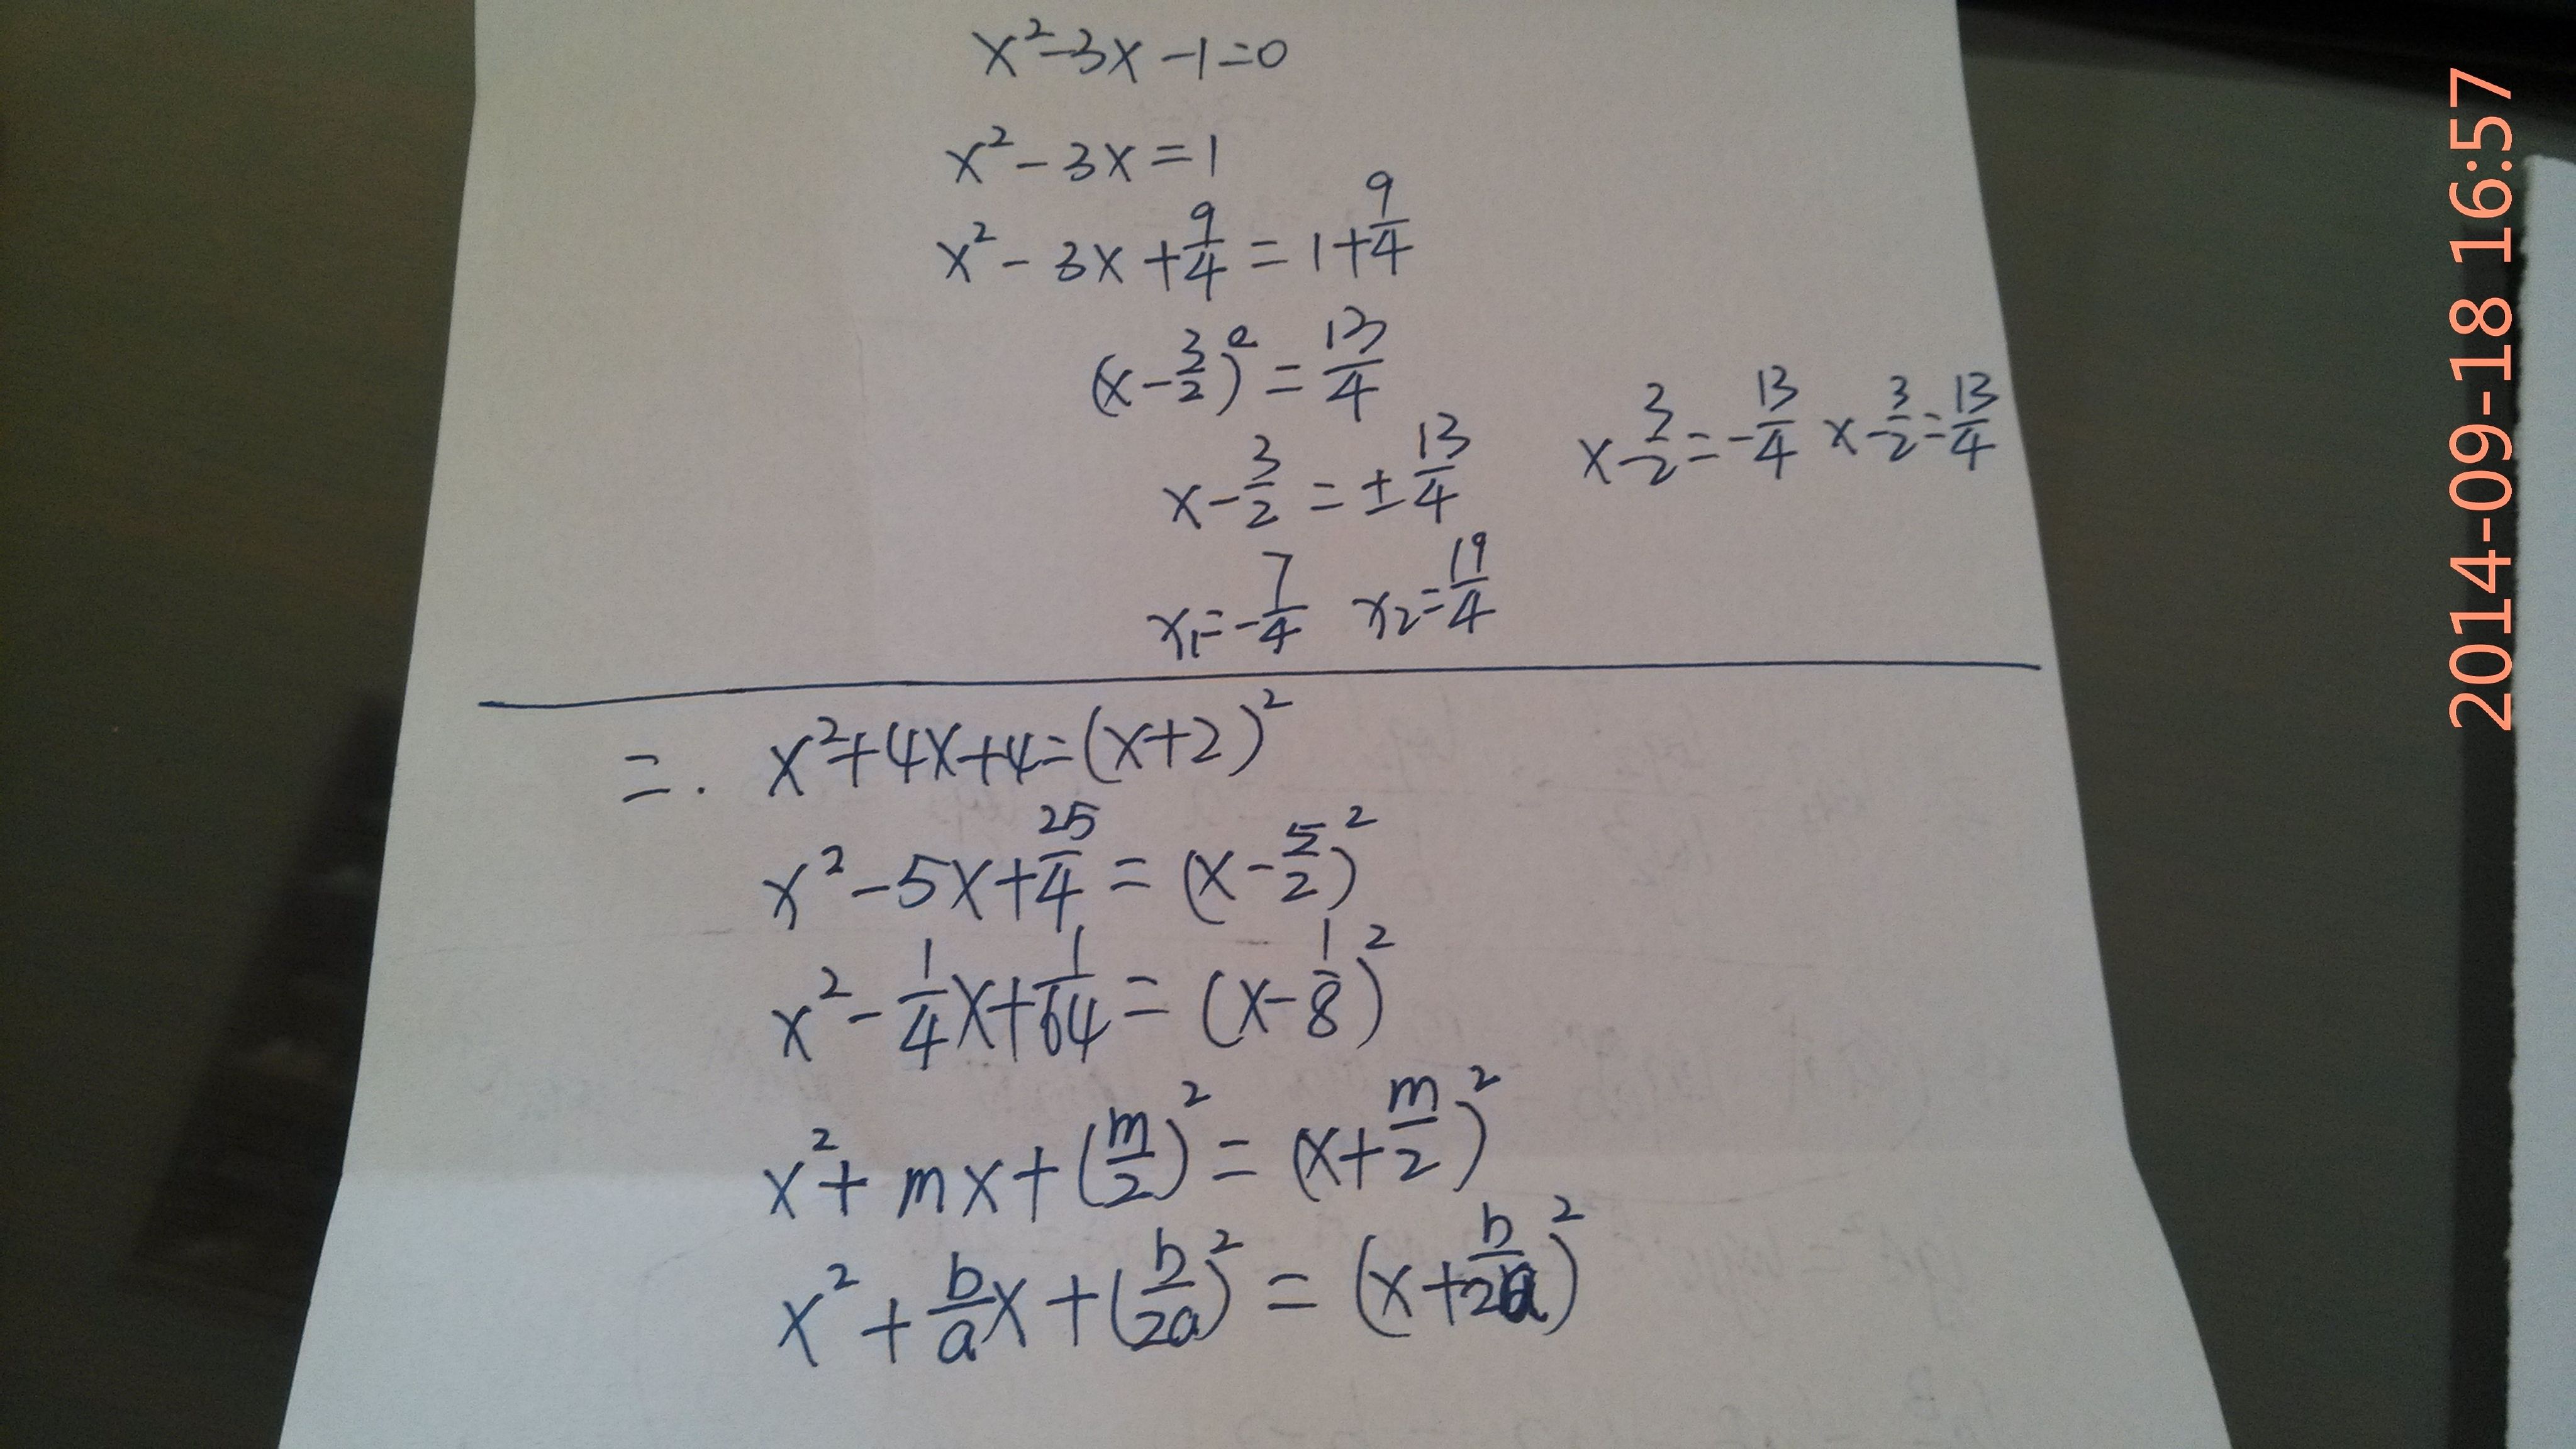 x²-3x-1=0
x²-3x=1
x²-3x+9/4=1+9/4
(x-3/2)²=13/4
x-3/2=±13/4 x-3/2=-13/4 x-3/2=13/4
x₁=-7/4 x₂=19/4
二. x²+4x+4=(x+2)²
x²-5x+25/4=(x-5/2)²
x²-1/4x+1/64=(x-1/8)²
x²+mx+(m/2)²=(x+m/2)²
x²+b/ax+(b/2a)²=(x+b/2a)²
2014-09-18 16:57